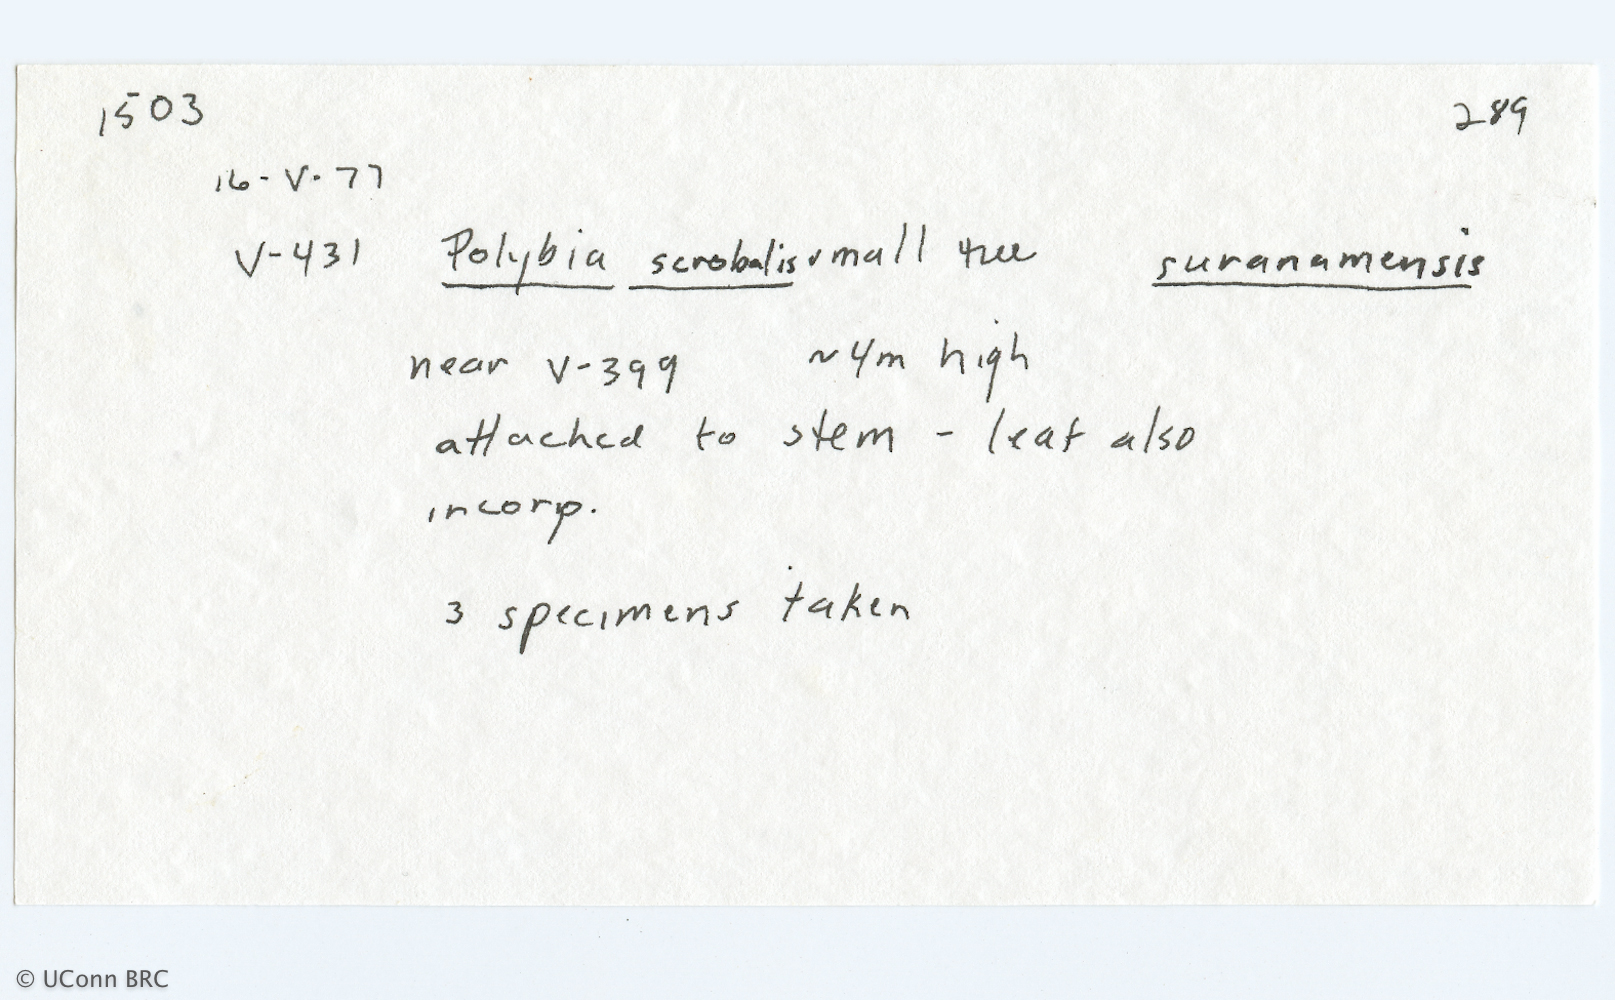 1503 289
16-V-77
V-431 Polybia scrobalis small tree suranamensis
near V-399 ~4m high
attached to stem - leaf also
incorp.
3 specimens taken
© UConn BRC